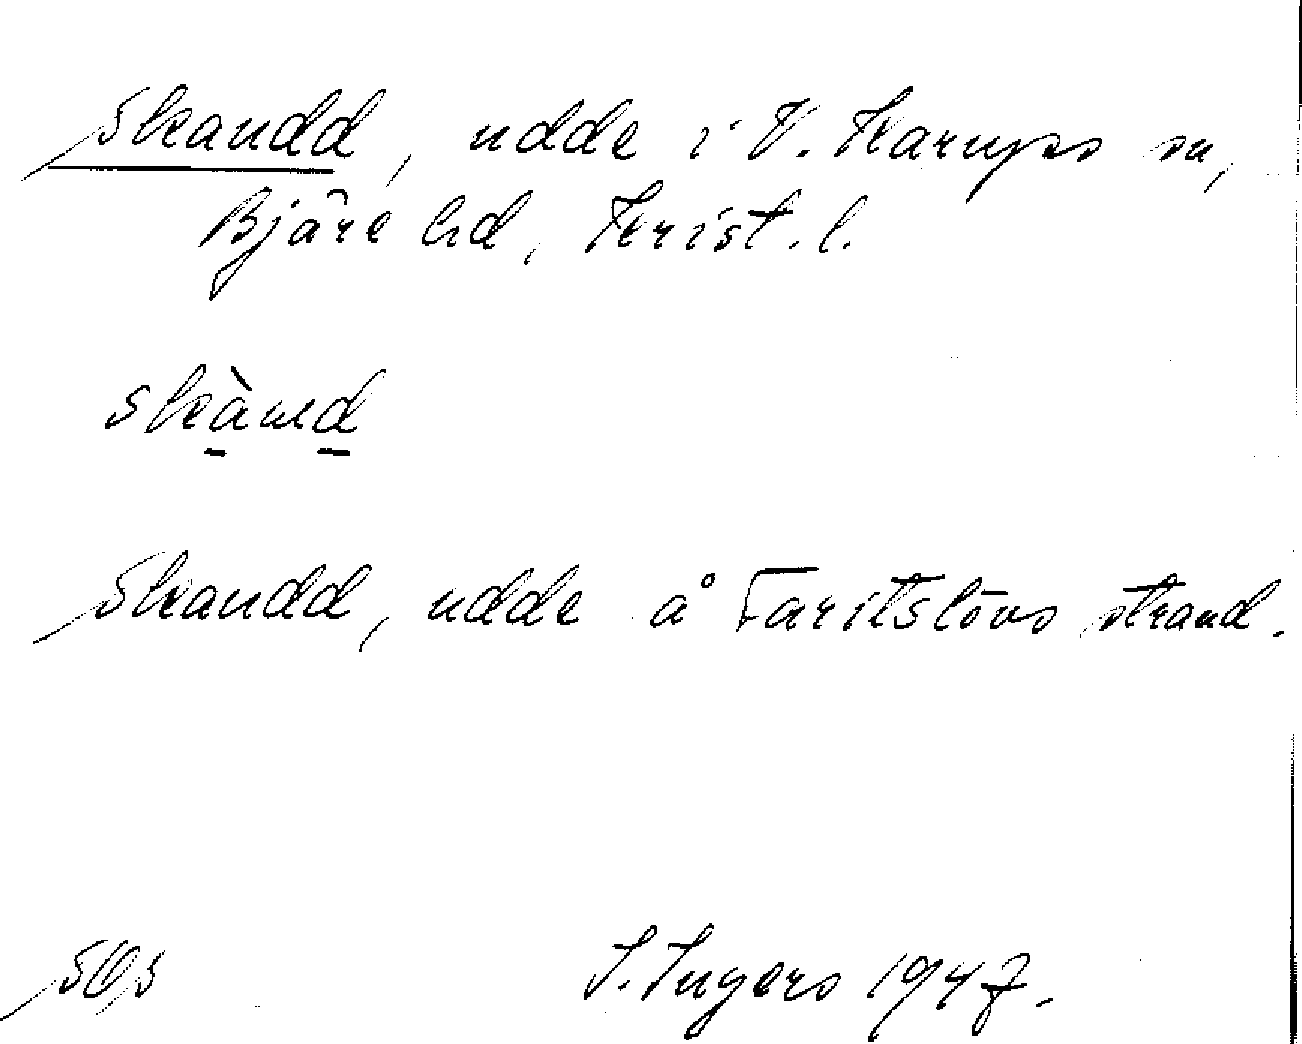 Skandd, udde i V. Karups sn,
Bjäre hd, Krist. l.
skànd
Skandd, udde å Faritslövs strand.
I. Ingers 1947.